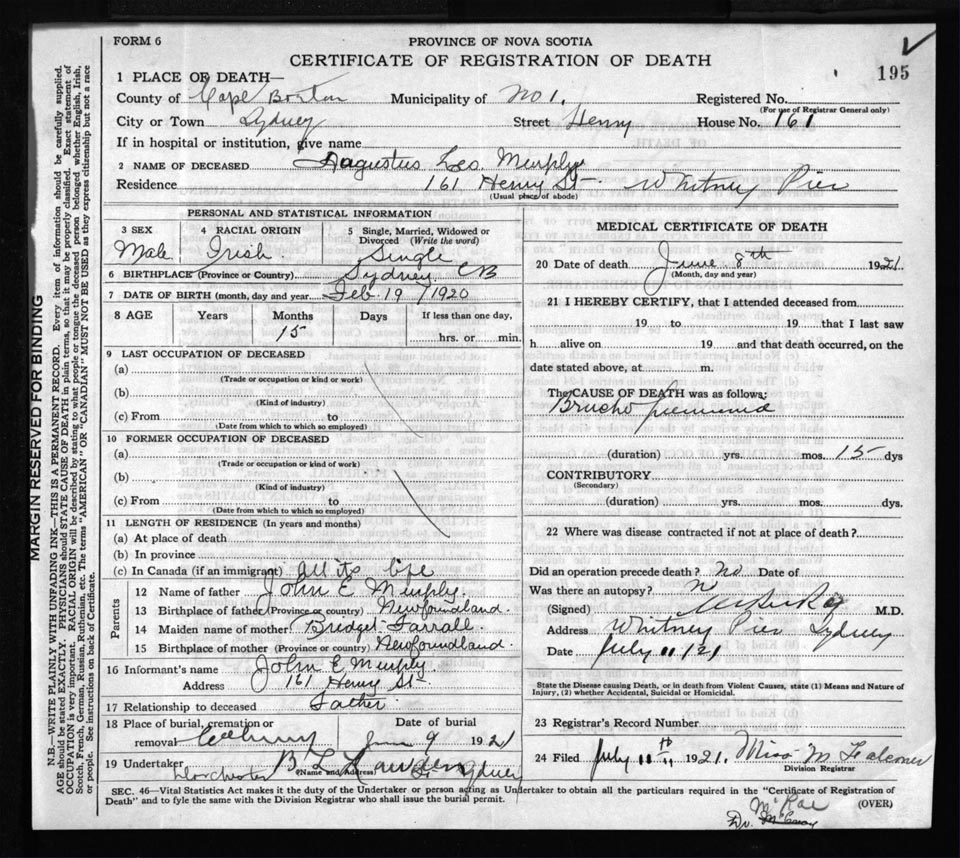 FORM 6
PROVINCE OF NOVA SCOTIA
CERTIFICATE OF REGISTRATION OF DEATH
195
1 PLACE OF DEATH—
County of Cape Breton Municipality of No 1. Registered No.
(For use of Registrar General only)
City or Town Sydney Street Henry House No. 161
If in hospital or institution, give name
2 NAME OF DECEASED Augustus Leo. Murphy
Residence 161 Henry St- Whitney Pier
(Usual place of abode)
PERSONAL AND STATISTICAL INFORMATION
3 SEX Male
4 RACIAL ORIGIN Irish.
5 Single, Married, Widowed or Divorced (Write the word) Single
6 BIRTHPLACE (Province or Country) Sydney CB
7 DATE OF BIRTH (month, day and year Feb 19 / 1920
8 AGE Years Months Days If less than one day,
15 hrs. or min.
9 LAST OCCUPATION OF DECEASED
(a)
(Trade or occupation or kind or work)
(b)
(Kind of industry)
(c) From to
(Date from which to which so employed)
10 FORMER OCCUPATION OF DECEASED
(a)
(Trade or occupation or kind of work)
(b)
(Kind of industry)
(c) From to
(Date from which to which so employed)
11 LENGTH OF RESIDENCE (In years and months)
(a) At place of death
(b) In province
(c) In Canada (if an immigrant) All its life
Parents
12 Name of father John E Murphy.
13 Birthplace of father (Province or country) Newfoundland.
14 Maiden name of mother Bridget Farrall.
15 Birthplace of mother (Province or country) Newfoundland.
16 Informant's name John E Murphy
Address 161 Henry St-
17 Relationship to deceased Father
18 Place of burial, cremation or Date of burial
removal June 9 1921
19 Undertaker B L
Dorchester (Name and Address) St. Sydney
MEDICAL CERTIFICATE OF DEATH
20 Date of death June 8th 1921.
(Month, day and year)
21 I HEREBY CERTIFY, that I attended deceased from
19 to 19 that I last saw
h alive on 19 and that death occurred, on the
date stated above, at m.
The CAUSE OF DEATH was as follows:
Broncho pneumonia
(duration) yrs. mos. 15 dys
CONTRIBUTORY
(Secondary)
(duration) yrs. mos. dys.
22 Where was disease contracted if not at place of death?
Did an operation precede death? no Date of
Was there an autopsy? n
(Signed) M.D.
Address Whitney Pier Sydney
Date July 11/21
State the Disease causing Death, or in death from Violent Causes, state (1) Means and Nature of
Injury, (2) whether Accidental, Suicidal or Homicidal.
23 Registrar's Record Number
24 Filed July 11 1921. Miss M Falconer
Division Registrar
SEC. 46—Vital Statistics Act makes it the duty of the Undertaker or person acting as Undertaker to obtain all the particulars required in the "Certificate of Registration of
Death" and to fyle the same with the Division Registrar who shall issue the burial permit.
(OVER)
McRae
Dr.
MARGIN RESERVED FOR BINDING
N.B.—WRITE PLAINLY WITH UNFADING INK—THIS IS A PERMANENT RECORD. Every item of information should be carefully supplied.
AGE should be stated EXACTLY. PHYSICIANS should STATE CAUSE OF DEATH in plain terms, so that it may be properly classified. Exact statement of
OCCUPATION is very important. RACIAL ORIGIN will be described by stating to what people or tongue the deceased person belonged whether English, Irish,
Scotch, French, German, Russian, Ruthenian, etc. The terms "AMERICAN" OR "CANADIAN" MUST NOT BE USED as they express citizenship but not a race
or people. See instructions on back of Certificate.